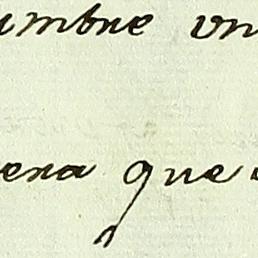 umbre un
era que